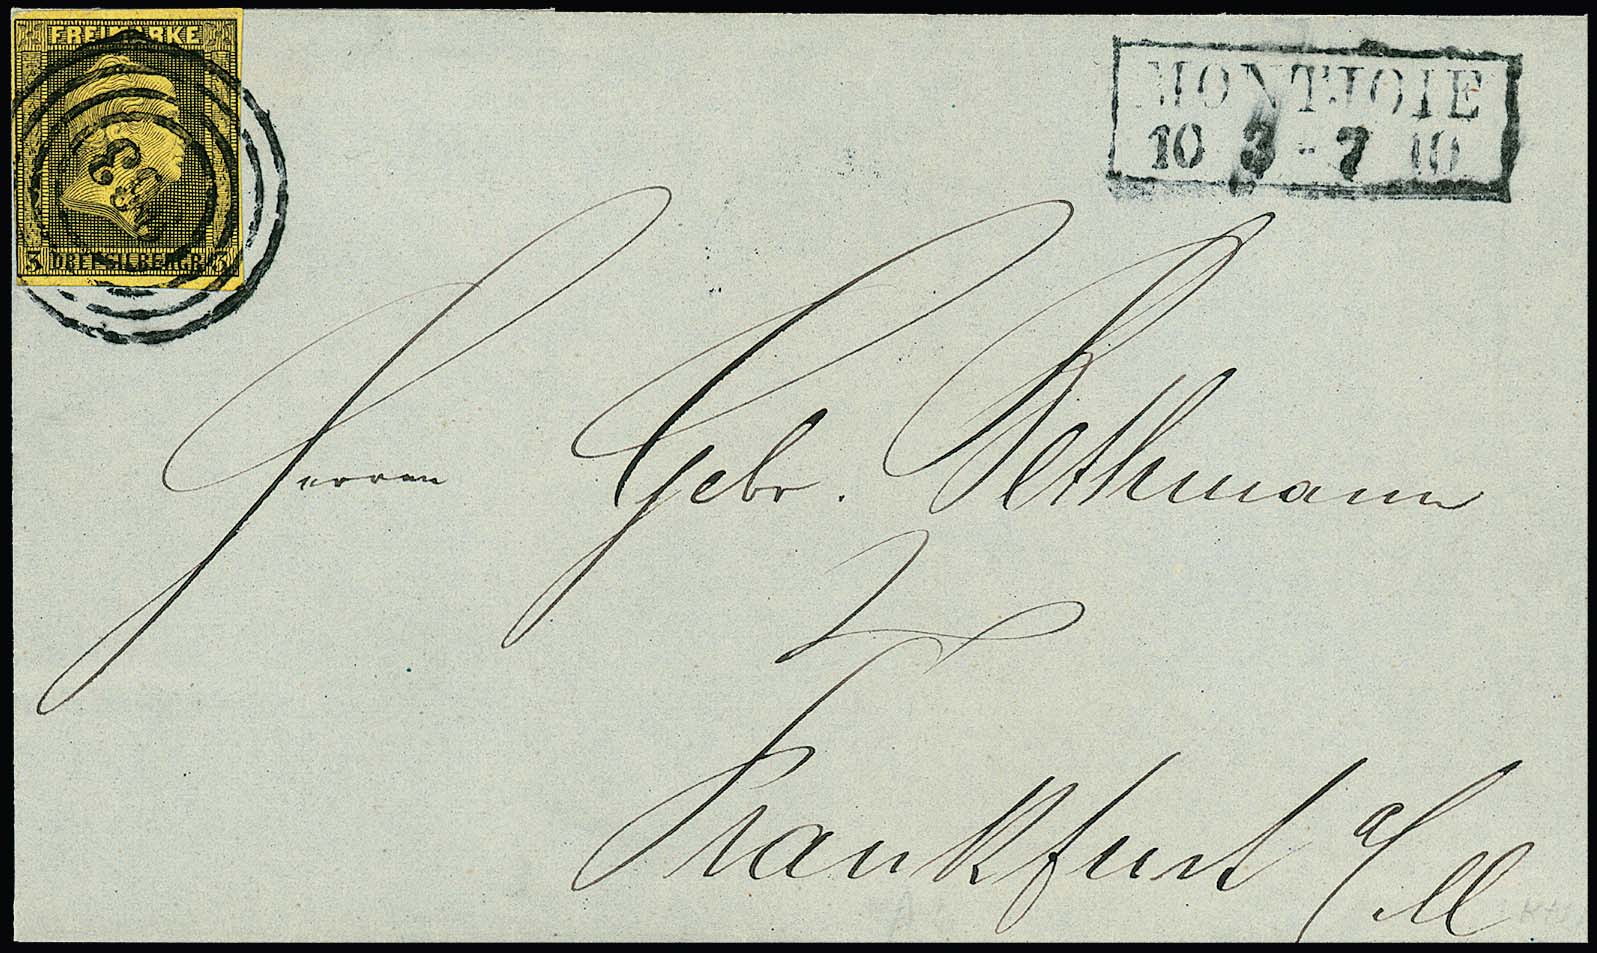 FREIMARKE
3 DREI SILBERGR. 3
MONTJOIE
10 3 - 7 10
Herren Gebr. Bethmann
Frankfurt a/M